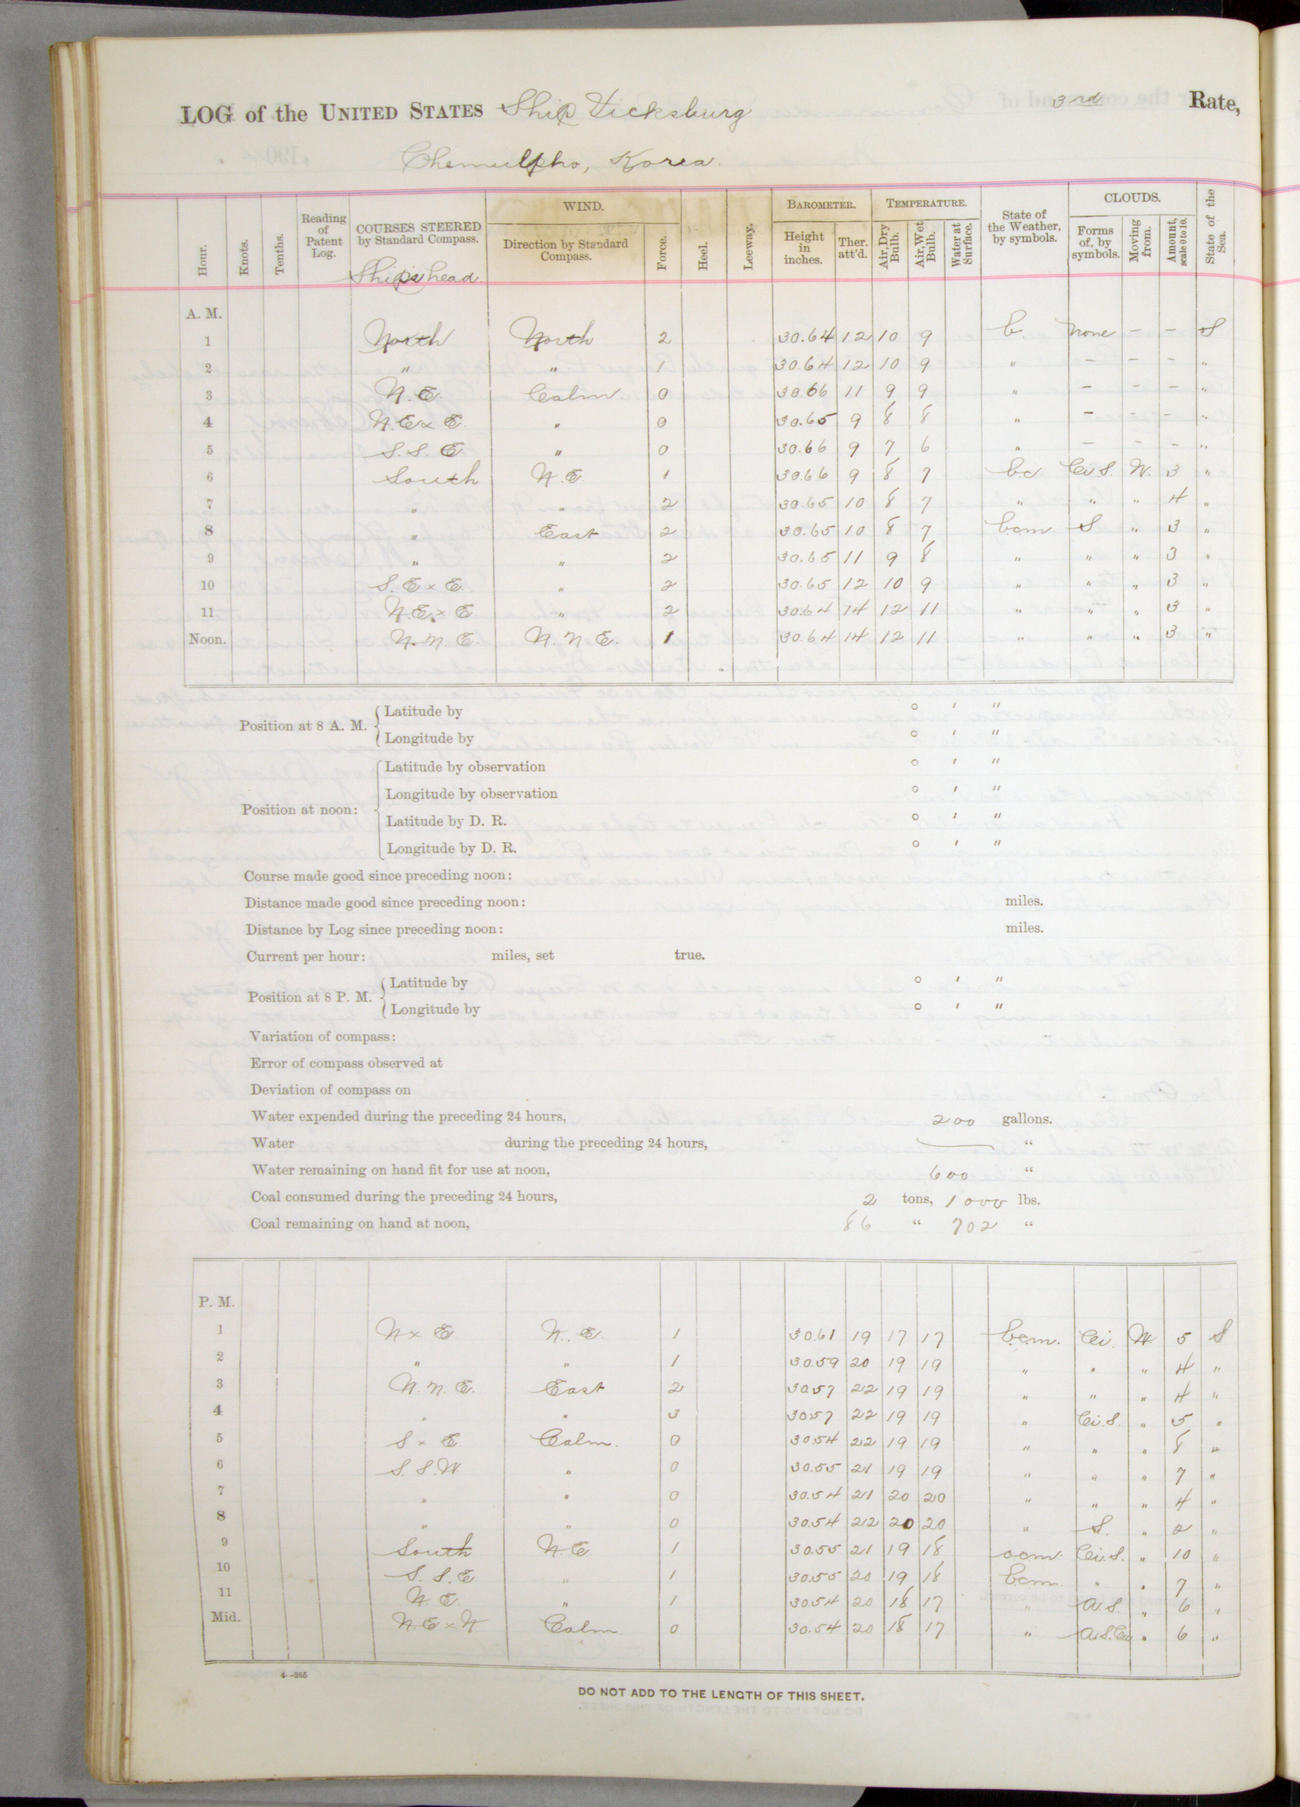 LOG of the UNITED STATES Ship Vicksburg 3rd Rate,
Chemulpho, Korea.
Hour. Knots. Tenths. Reading of Patent Log. COURSES STEERED by Standard Compass. WIND. Direction by Standard Compass. Force. Heel. Leeway. BAROMETER. Height in inches. Ther. att'd. TEMPERATURE. Air, Dry Bulb. Air, Wet Bulb. Water at Surface. State of the Weather, by symbols. CLOUDS. Forms of, by symbols. Moving from. Amount, scale 0 to 10. State of the Sea.
Ship's head
A. M.
1 North North 2 30.64 12 10 9 b. none - - S
2 " " 1 30.64 12 10 9 " - - - "
3 N.E. Calm 0 30.66 11 9 9 " - - - "
4 N.E x E. " 0 30.65 9 8 8 " - - - "
5 S.S.E. " 0 30.66 9 7 6 " - - - "
6 South N.E. 1 30.66 9 8 7 bc Ci.S. W. 3 "
7 " " 2 30.65 10 8 7 " " " 4 "
8 " East 2 30.65 10 8 7 bcm S " 3 "
9 " " 2 30.65 11 9 8 " " " 3 "
10 S.E x E. " 2 30.65 12 10 9 " " " 3 "
11 N.E. x E " 2 30.64 14 12 11 " " " 3 "
Noon. N.N.E N.N.E. 1 30.64 14 12 11 " " " 3 "
Position at 8 A. M. Latitude by ° ' "
Longitude by ° ' "
Position at noon: Latitude by observation ° ' "
Longitude by observation ° ' "
Latitude by D. R. ° ' "
Longitude by D. R. ° ' "
Course made good since preceding noon:
Distance made good since preceding noon: miles.
Distance by Log since preceding noon: miles.
Current per hour: miles, set true.
Position at 8 P. M. Latitude by ° ' "
Longitude by ° ' "
Variation of compass:
Error of compass observed at
Deviation of compass on
Water expended during the preceding 24 hours, 200 gallons.
Water during the preceding 24 hours, — "
Water remaining on hand fit for use at noon, 600 "
Coal consumed during the preceding 24 hours, 2 tons, 1000 lbs.
Coal remaining on hand at noon, 86 " 702 "
P. M.
1 N x E N.E. 1 30.61 19 17 17 bcm. Ci. W 5 S
2 " " 1 30.59 20 19 19 " " " 4 "
3 N.N.E. East 2 30.57 22 19 19 " " " 4 "
4 " " 3 30.57 22 19 19 " Ci.S. " 5 "
5 S x E. Calm. 0 30.54 22 19 19 " " " 8 "
6 S.S.W " 0 30.55 21 19 19 " " " 7 "
7 " " 0 30.54 21 20 20 " " " 4 "
8 " " 0 30.54 22 20 20 " S. " 2 "
9 South N.E. 1 30.55 21 19 18 ocm. Ci.S. " 10 "
10 S.S.E " 1 30.55 20 19 18 bcm. " " 7 "
11 N.E. " 1 30.54 20 18 17 " A.S. " 6 "
Mid. N.E x N Calm. 0 30.54 20 18 17 " " 6 "
4—265
DO NOT ADD TO THE LENGTH OF THIS SHEET.